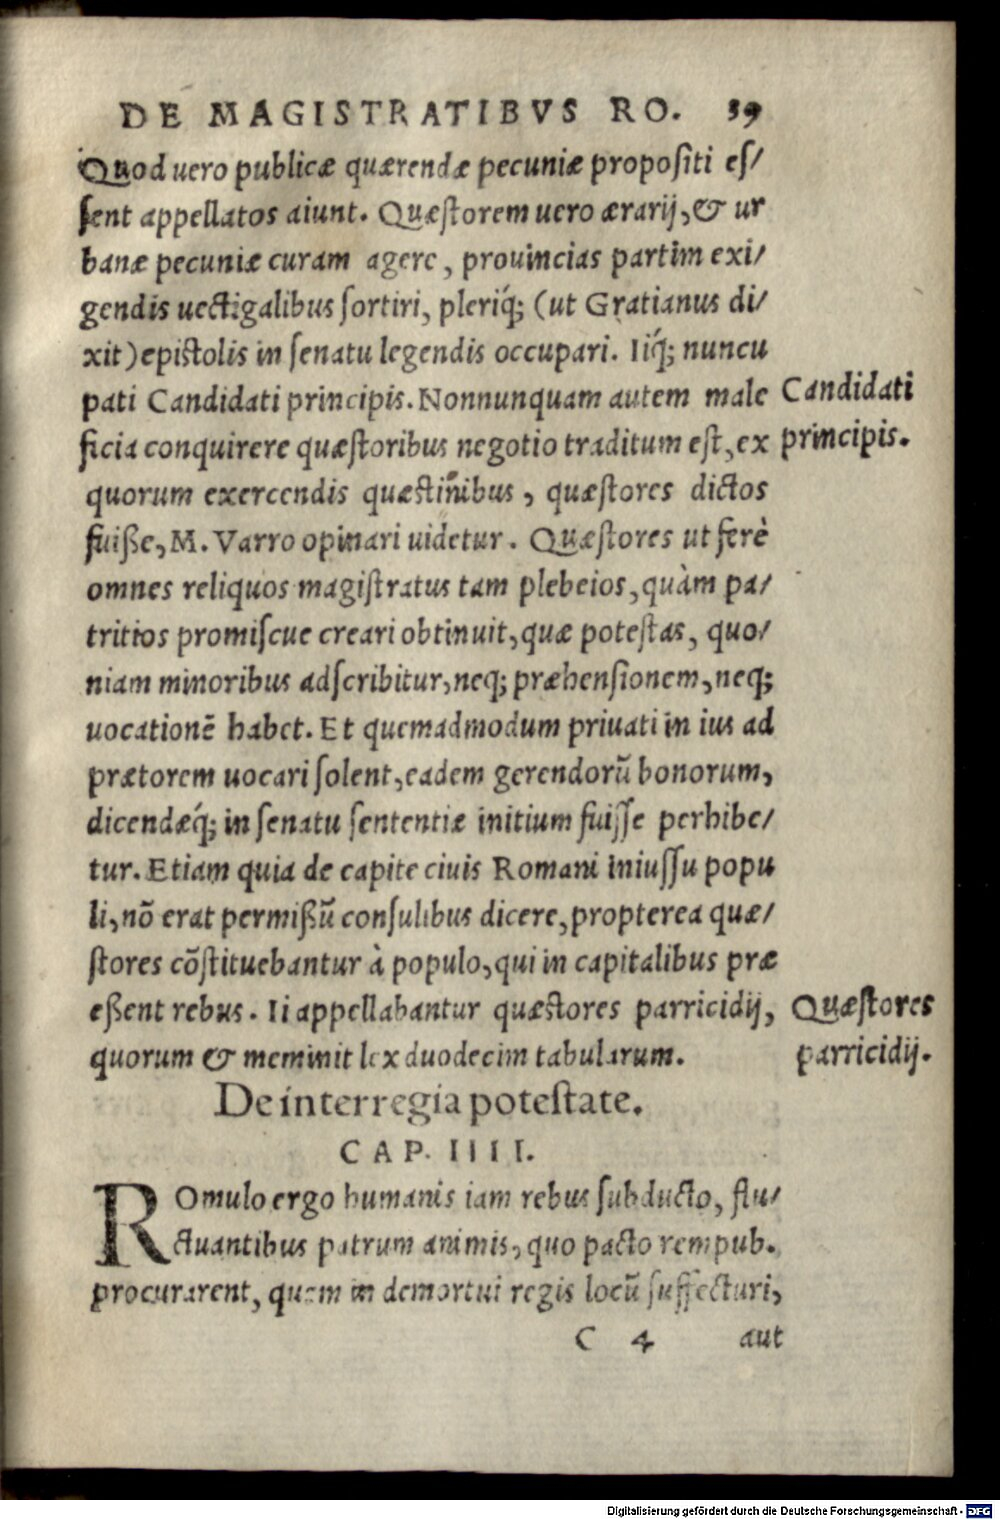 DE MAGISTRATIBVS RO. 39
Quod uero publicæ quærendæ pecuniæ propositi es/
sent appellatos aiunt. Quæstorem uero ærarij, & ur
banæ pecuniæ curam agere, prouincias partim exi/
gendis uectigalibus sortiri, pleriq́; (ut Gratianus di/
xit) epistolis in senatu legendis occupari. Iiq́; nuncu
pati Candidati principis. Nonnunquam autem male
Candidati
ficia conquirere quæstoribus negotio traditum est, ex
principis.
quorum exercendis quæstinibus, quæstores dictos
fuiße, M. Varro opinari uidetur. Quæstores ut ferè
omnes reliquos magistratus tam plebeios, quàm pa/
tritios promiscue creari obtinuit, quæ potestas, quo/
niam minoribus adscribitur, neq; præhensionem, neq;
uocationē habet. Et quemadmodum priuati in ius ad
prætorem uocari solent, eadem gerendorū bonorum,
dicendæq́; in senatu sententiæ initium fuisse perhibe/
tur. Etiam quia de capite ciuis Romani iniussu popu
li, nō erat permißū consulibus dicere, propterea quæ/
stores cōstituebantur à populo, qui in capitalibus præ
eßent rebus. Ii appellabantur quæstores parricidij,
Quæstores
quorum & meminit lex duodecim tabularum.
parricidij.
De interregia potestate.
CAP. IIII.
ROmulo ergo humanis iam rebus subducto, flu/
ctuantibus patrum animis, quo pacto rempub.
procurarent, quem in demortui regis locū suffecturi,
C 4 aut
Digitalisierung gefördert durch die Deutsche Forschungsgemeinschaft - DFG